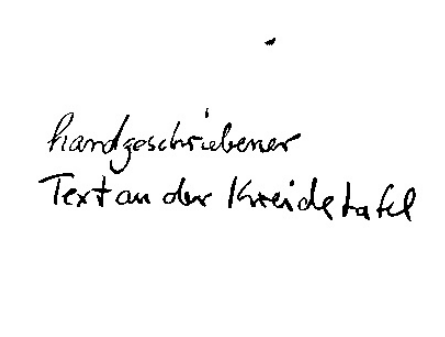 handgeschriebener
Text an der Kreidetafel